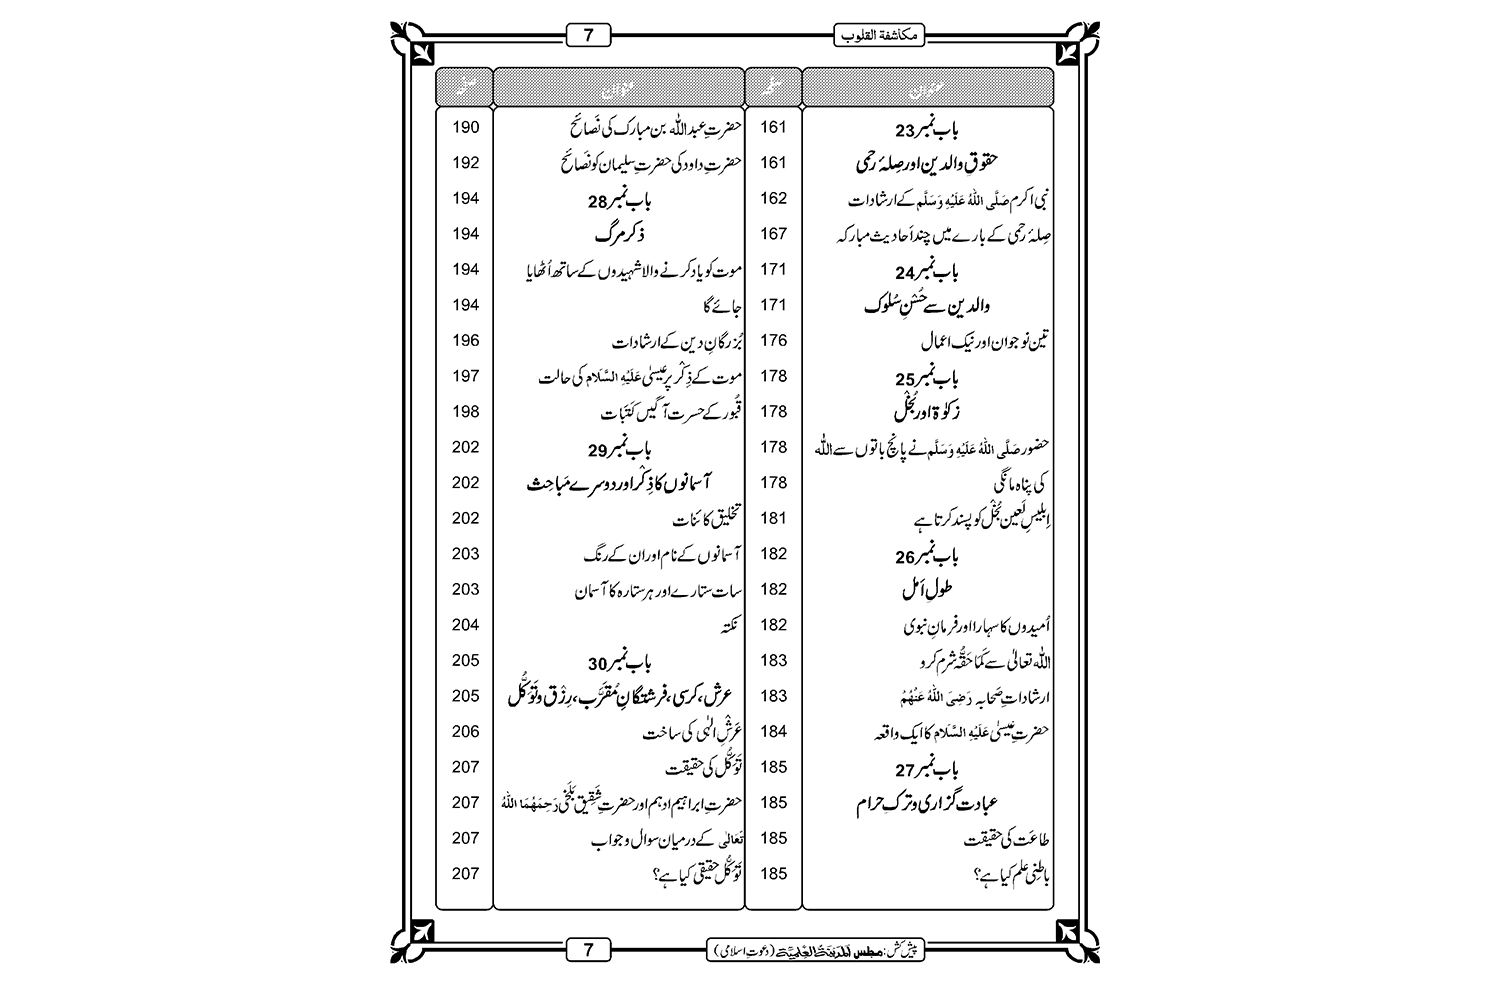 مکاشفۃ القلوب 7
عنوان صفحہ
باب نمبر 23 161
حقوقِ والدین اور صِلۂ رحمی 161
نبی اکرم صَلَّی اللّٰہُ عَلَیْہِ وَسَلَّم کے ارشادات 162
صِلۂ رحمی کے بارے میں چند اَحادیث مبارکہ 167
باب نمبر 24 171
والدین سے حُسْنِ سُلوک 171
تین نوجوان اور نیک اعمال 176
باب نمبر 25 178
زکوٰۃ اور بُخْل 178
حضور صَلَّی اللّٰہُ عَلَیْہِ وَسَلَّم نے پانچ باتوں سے اللّٰہ 178
کی پناہ مانگی 178
اِبلیسِ لَعین بُخْل کو پسند کرتا ہے 181
باب نمبر 26 182
طولِ اَمل 182
اُمیدوں کا سہارا اور فرمانِ نبوی 182
اللّٰہ تعالیٰ سے کَمَا حَقُّہٗ شرم کرو 183
ارشاداتِ صَحابہ رَضِیَ اللّٰہُ عَنْہُمْ 183
حضرتِ عیسیٰ عَلَیْہِ السَّلَام کا ایک واقعہ 184
باب نمبر 27 185
عبادت گزاری و ترکِ حرام 185
طاعَت کی حقیقت 185
باطِنی عِلم کیا ہے؟ 185
عنوان صفحہ
حضرتِ عبد اللّٰہ بن مبارک کی نَصائح 190
حضرتِ داود کی حضرتِ سلیمان کو نَصائح 192
باب نمبر 28 194
ذکر مرگ 194
موت کو یاد کرنے والا شہیدوں کے ساتھ اُٹھایا 194
جائے گا 194
بُزرگانِ دین کے ارشادات 196
موت کے ذِکْر پر عیسیٰ عَلَیْہِ السَّلَام کی حالت 197
قُبُور کے حسرت آگیں کَتَبات 198
باب نمبر 29 202
آسمانوں کا ذِکْر اور دوسرے مَباحِث 202
تخلیق کائنات 202
آسمانوں کے نام اور ان کے رنگ 203
سات ستارے اور ہر ستارہ کا آسمان 203
نکتہ 204
باب نمبر 30 205
عرش، کرسی، فرشتگانِ مُقَرَّب، رِزْق و تَوَکُّل 205
عَرْشِ الٰہی کی ساخت 206
تَوَکُّل کی حقیقت 207
حضرتِ ابراہیم ادہم اور حضرتِ شَقِیق بَلَخی رَحِمَہُمَا اللّٰہُ 207
تَعَالٰی کے درمیان سوال و جواب 207
تَوَکُّل حقیقی کیا ہے؟ 207
پیش کش: مجلس المدینۃ العلمیۃ (دعوتِ اسلامی) 7